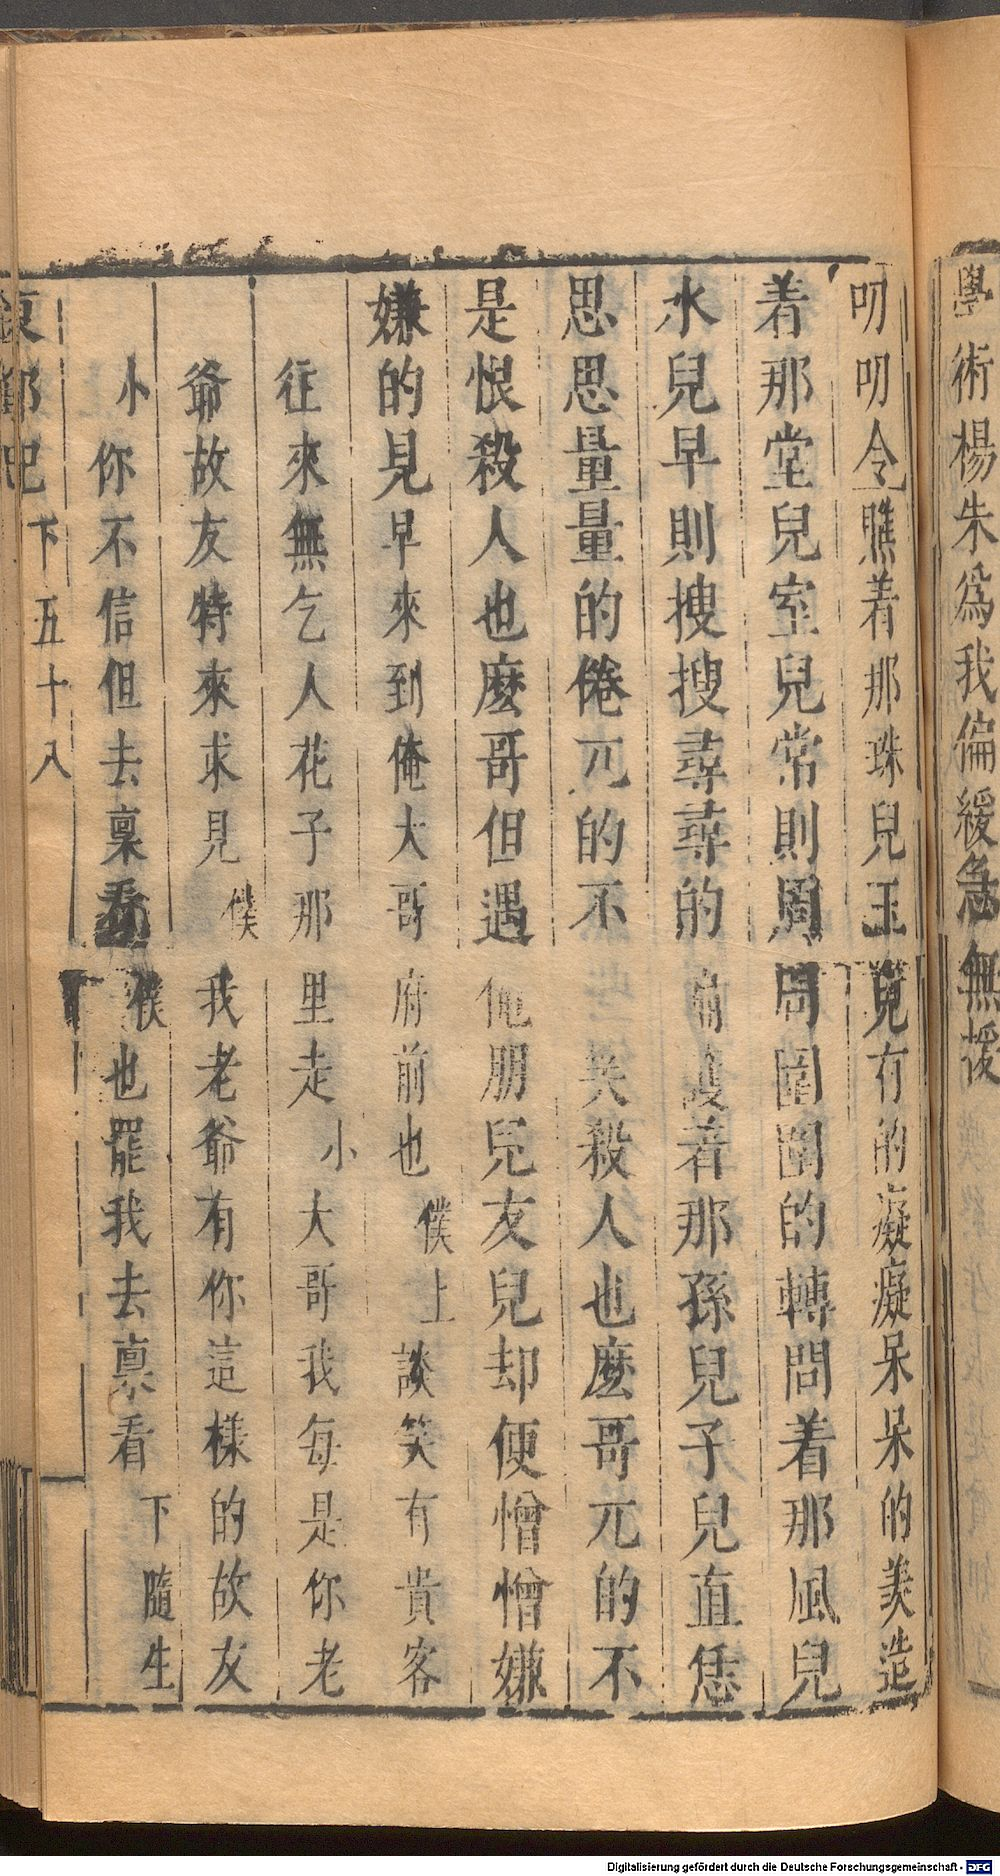 學術楊朱爲我偏緩急無援
叨叨令瞧着那珠兒玉兒有的癡癡呆呆的羙造
着那堂兒室兒常則周周圍圍的轉問着那風兒
水兒早則搜搜尋尋的偏護着那孫兒子兒直恁
思思量量的倦兀的不笑殺人也麽哥兀的不
是恨殺人也麽哥但遇俺朋兒友兒却便憎憎嫌
嫌的見早來到俺大哥府前也僕上談笑有貴客
徃來無乞人花子那里走小大哥我每是你老
爺故友特來求見僕我老爺有你這樣的故友
小你不信但去稟看僕也罷我去稟看下隨生
下五十八
Digitalisierung gefördert durch die Deutsche Forschungsgemeinschaft - DFG